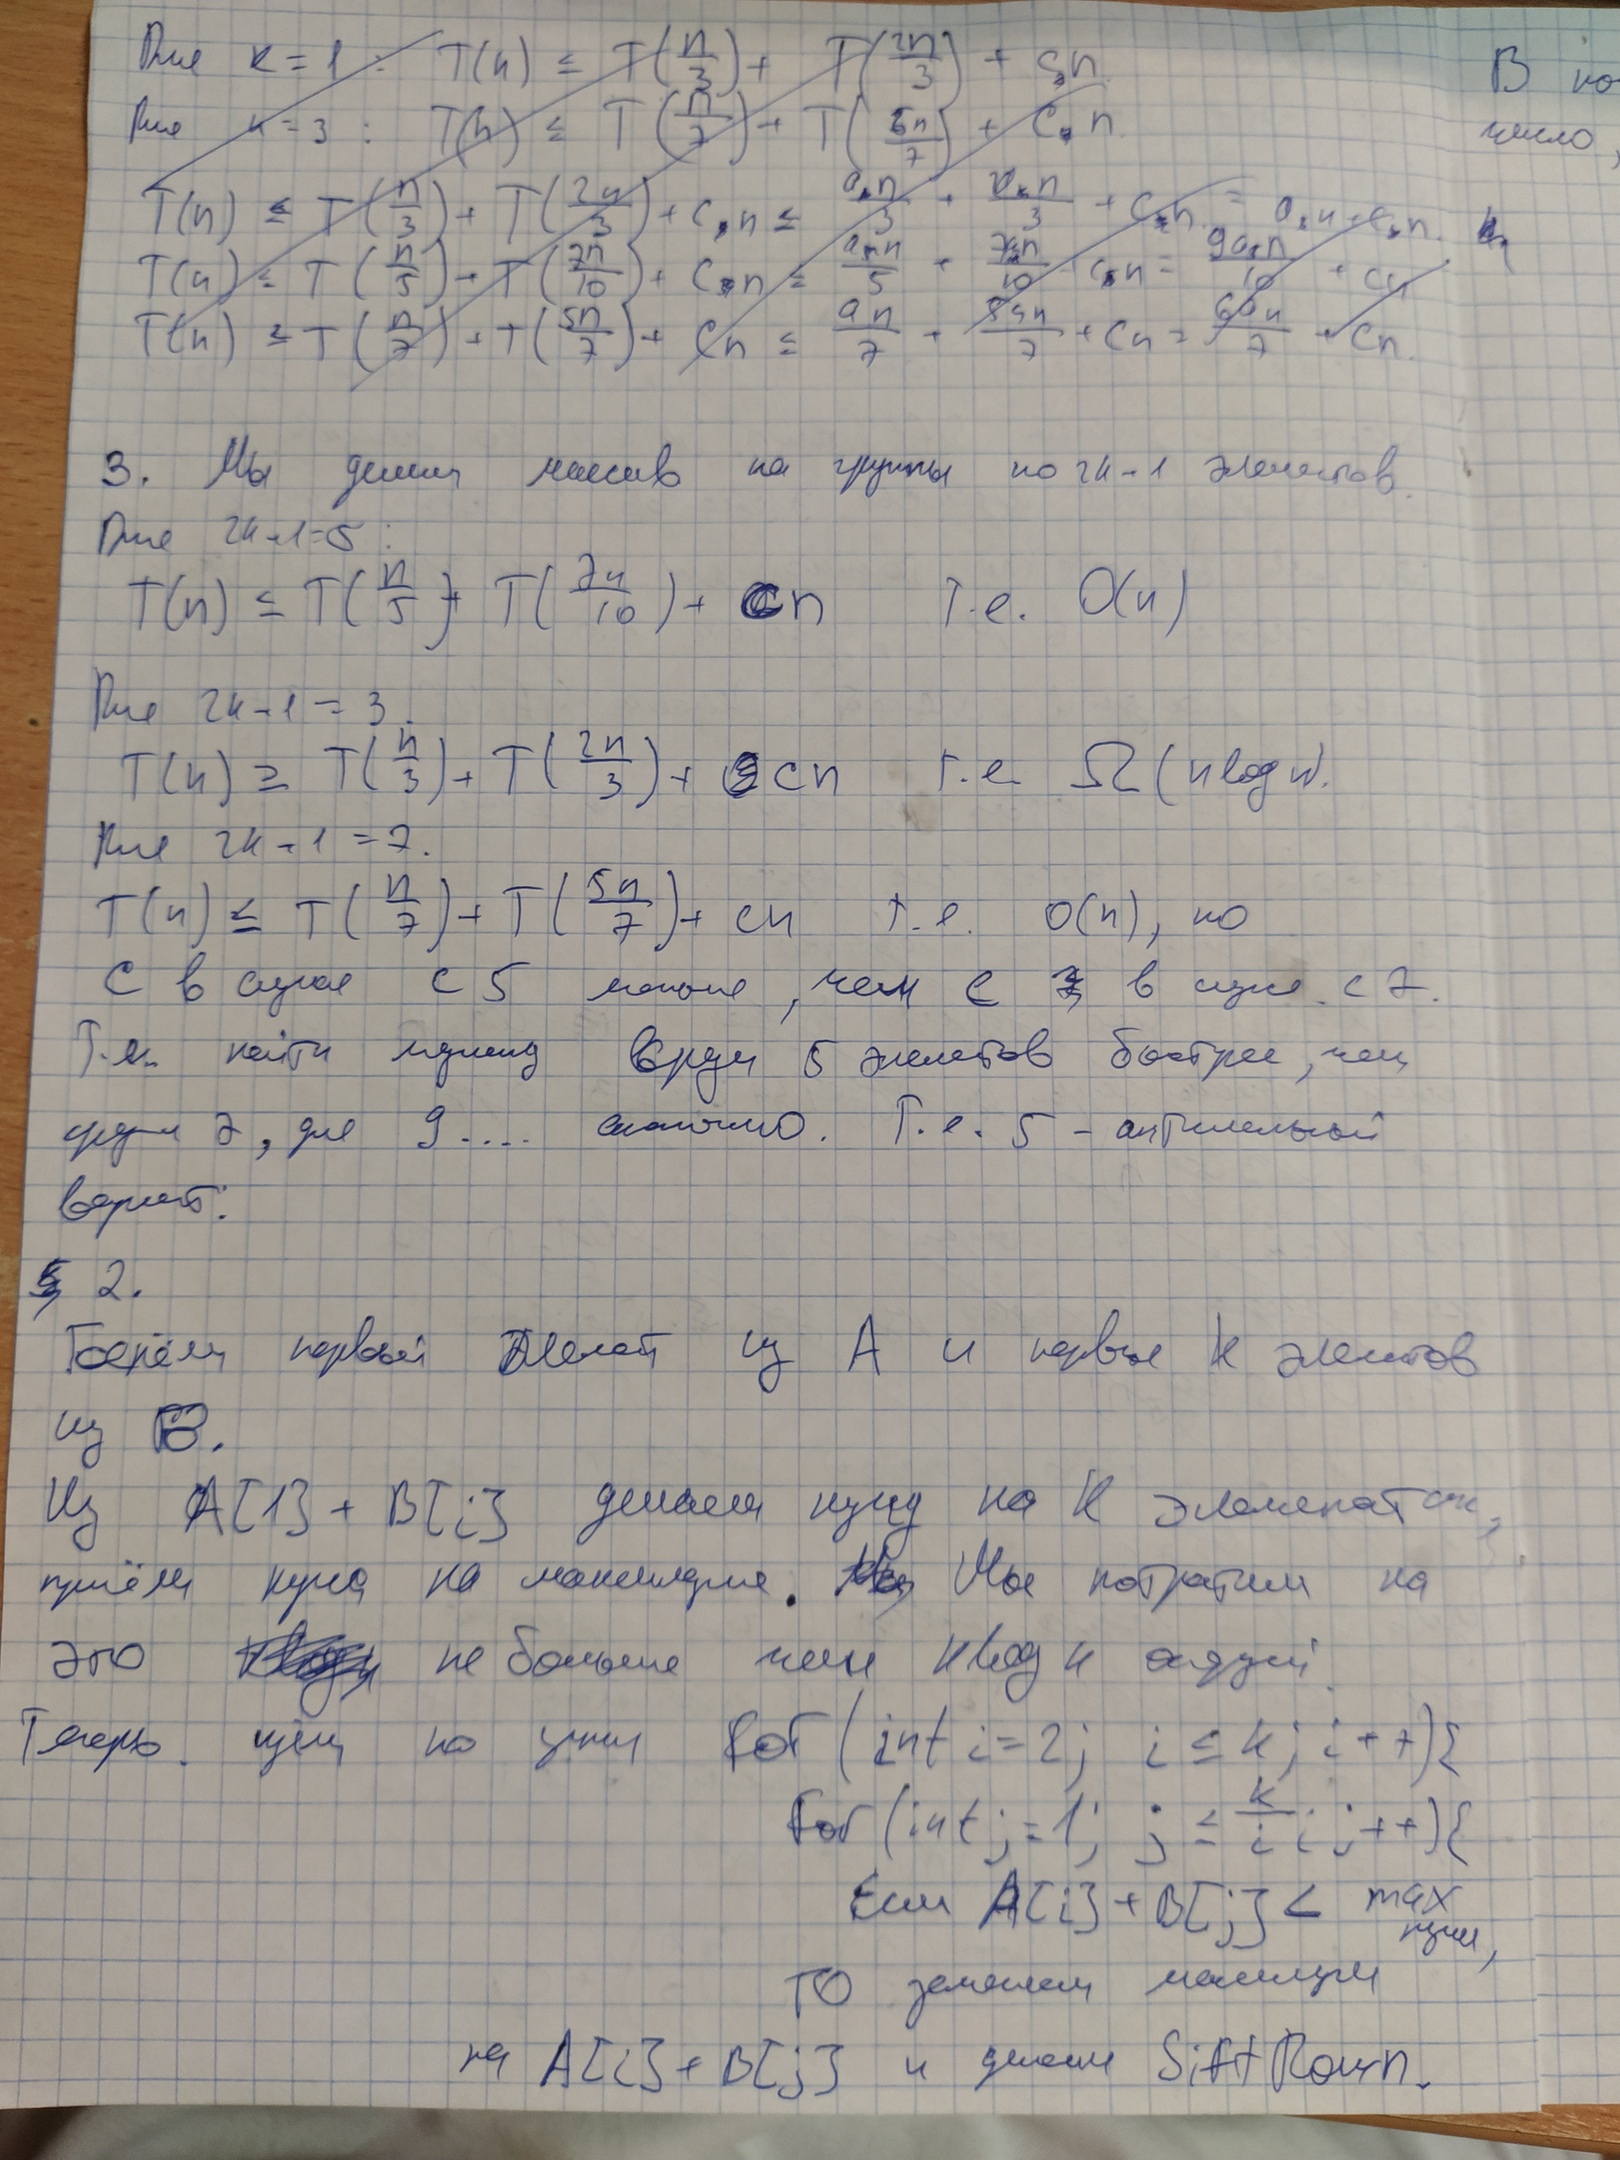 Для k=1: T(n) ≤ T(n/3) + T(2n/3) + c₁n
Для k=3: T(n) ≤ T(n/7) + T(5n/7) + c₁n
T(n) ≤ T(n/3) + T(2n/3) + c₁n ≤ a₁n/3 + 2a₁n/3 + c₁n = a₁n + c₁n.
T(n) ≤ T(n/5) + T(7n/10) + c₁n ≤ a₁n/5 + 7a₁n/10 + c₁n = 9a₁n/10 + cn
T(n) ≤ T(n/7) + T(5n/7) + cn ≤ an/7 + 5an/7 + cn = 6an/7 + cn.
В
число,
3. Мы делим массив на группы по 2k-1 элементов.
Для 2k-1=5:
T(n) ≤ T(n/5) + T(7n/10) + cn т.е. O(n)
Для 2k-1=3.
T(n) ≥ T(n/3) + T(2n/3) + cn т.е. Ω(n log n).
Для 2k-1=7.
T(n) ≤ T(n/7) + T(5n/7) + cn т.е. O(n), но
C в случае с 5 меньше, чем C в случае с 7.
Т.к. найти медиану среди 5 элементов быстрее, чем
среди 7, для 9.... аналогично. Т.е. 5 - оптимальный
вариант.
2.
Берём первый элемент из A и первые k элементов
из B.
Из A[1] + B[i] делаем кучу на k элементах,
причём куча на максимум. Мы потратим на
это не больше чем k log k операций.
Теперь идём по циклу for (int i=2; i ≤ k; i++){
for (int j=1; j ≤ k/i; j++){
Если A[i] + B[j] < max кучи,
то заменяем максимум
на A[i] + B[j] и делаем SiftDown.